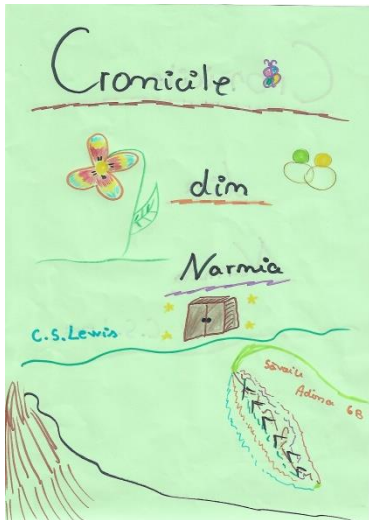 Cronicile
din
Narnia
C.S.Lewis
Adina 6B